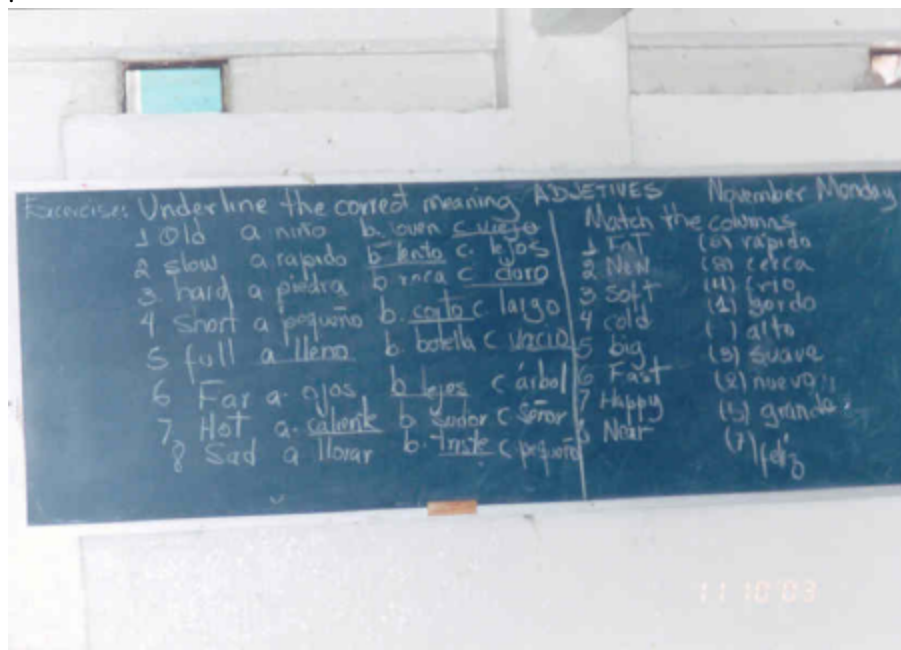 Excercise: Underline the correct meaning
1 Old a niño b. joven c viejo
2 slow a rapido b lento c. lejos
3. hard a piedra b roca c duro
4 Short a pequeño b. corto c largo
5 full a lleno b. botella c vacio
6 Far a. ojos b lejos c árbol
7. Hot a. caliente b sudor c señor
8 Sad a llorar b. triste c pequeño
ADJETIVES November Monday
Match the columns
1 FaT (6) rápido
2 New (8) cerca
3 Soft (4) frio
4 cold (1) gordo
5 big ( ) alto
6 Fast (3) suave
7 Happy (2) nuevo
8 Near (5) grande
(7) feliz
11 10 03